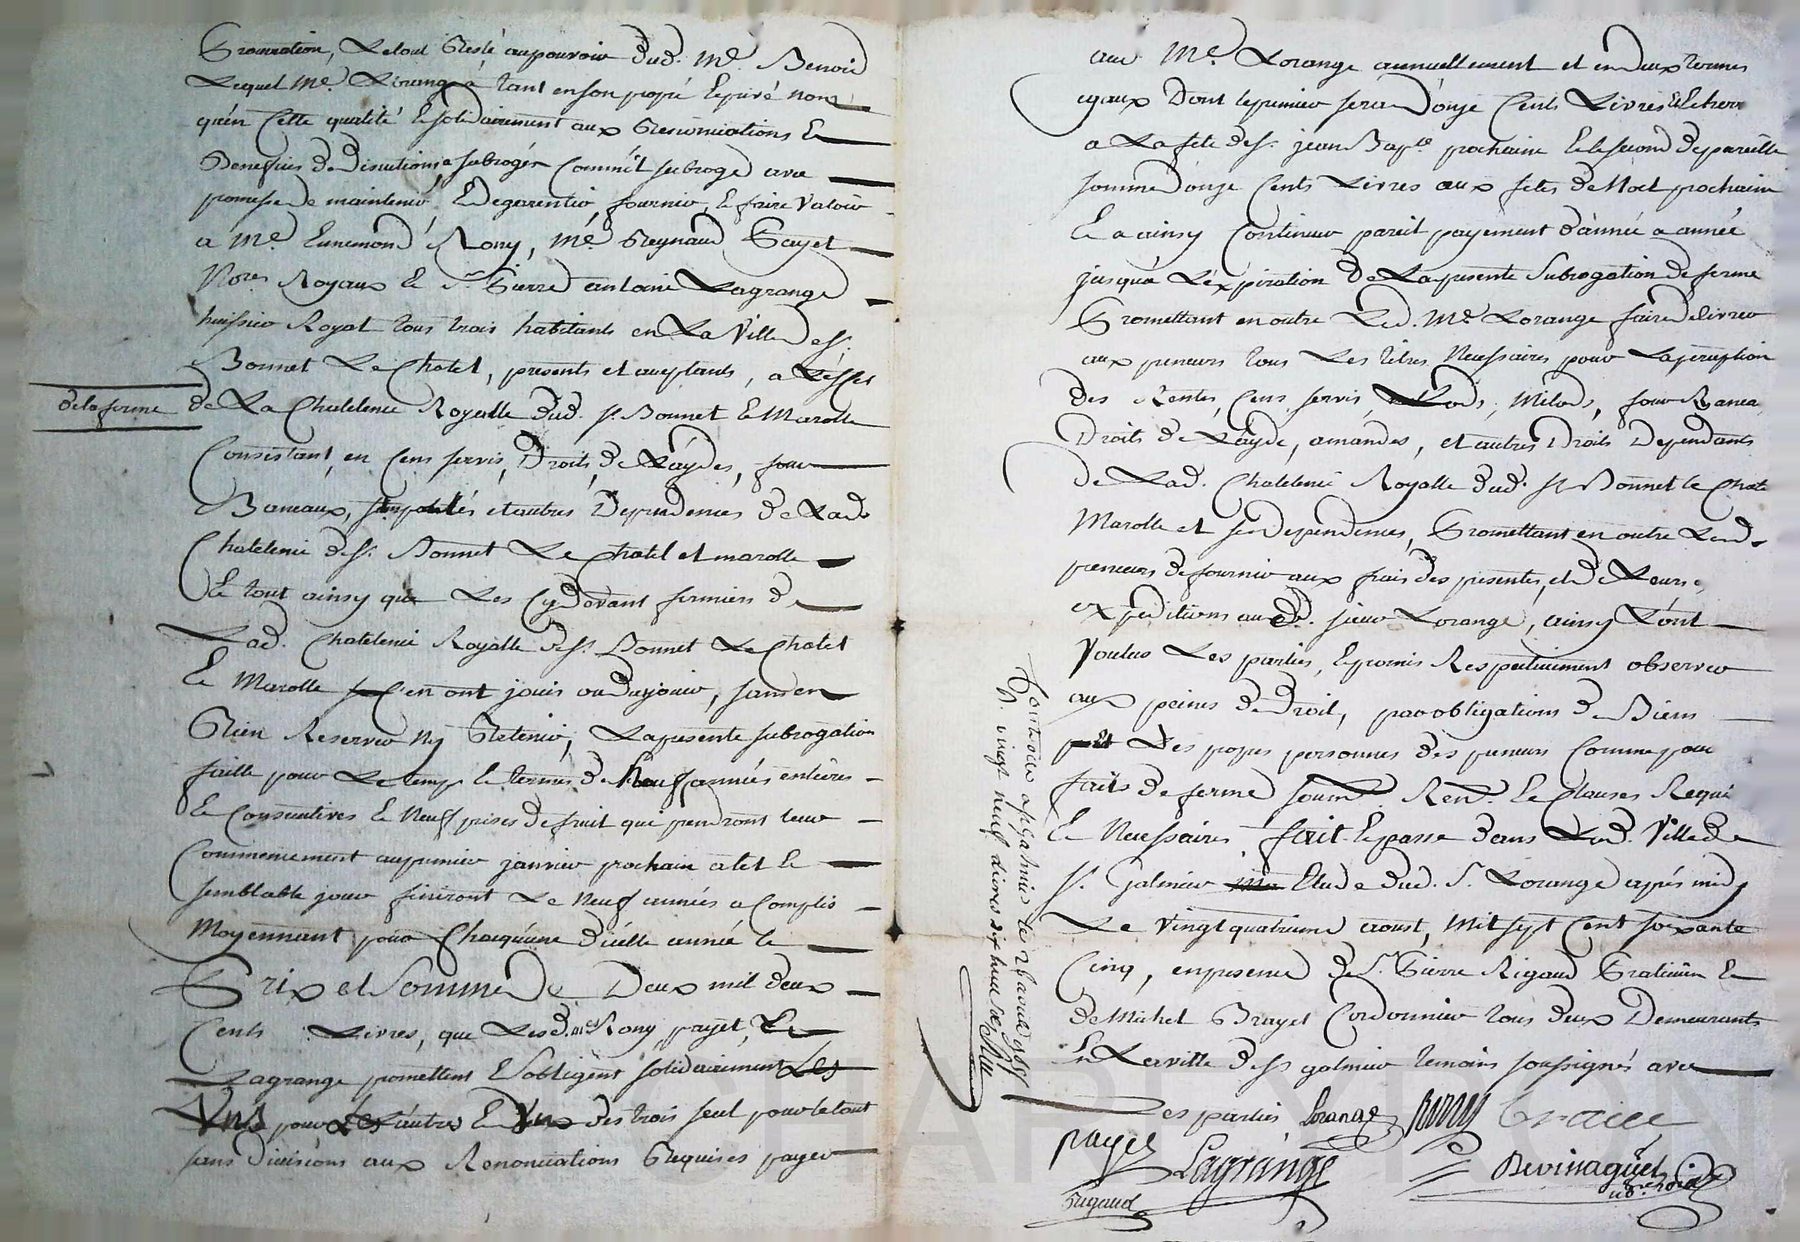 Procuration, Letout Resté aupouvoir dud. Me Benoid
Lequel Me. Lorange a tant enson propre & privé nom
qu'en Cette qualité & solidairement aux Renonciations &
Benefices de discutions, a subrogér Commé il subroge avec
promesse de maintenir & de garentir, fournir, & faire Valoir
a Me. Ennemond Rony, Me. Reynaud Payet
No.res Royaux & Sr Pierre antoine Lagrange
huissier Royal tous trois habitants en La Ville de St.
Bonnet Le Chatel, presents et aceptants, a L'éffet
de la ferme
de La Chatelenie Royalle dud. St Bonnet & Marolle
Consistant, en Cens servis, Droits de Laydes, four
Baneaux, et autres Dependences de Lad.
Chatelenie de St. Bonnet Le Chatel et marolle
Le tout ainsy que Les Cydevant fermiers de
Lad. Chatelenie Royalle de St. Bonnet Le Chatel
& Marolle en ont jouis ou du jouir, sans en
Rien Reserver Ny Retenir, La presente subrogation
faitte pour Le temp & termes de Neuf années entieres
& Consecutives & Neuf prises de fruit qui prendront leur
Commencement au premier janvier prochain a tel &
semblable jour finiront Le Neuf années acomplis
Moyennant pour Chacquune d'iélle année le
Prix et Somme de Deux mil deux
Cents Livres, que Lesd. mes Rony, payet, &
Lagrange promettent & sobligént solidairement Les
Uns pour Les autres & Un des trois seul pour le tout
sans divisions aux Renonciations Requises payer
aud Me. Lorange annuellement et en deux termes
egaux Dont le premier sera d'onze Cents Livres & Echera
a La fete de St. jean Bap.te prochaine & le second de pareille
somme d'onze Cents Livres aux fetes de Noel prochaine
& a ainsy Continuer pareil payement d'année a année
jusqu'a L'éxpiration de La presente Subrogation de ferme
Promettant en outre Led. Me Lorange faire delivrer
aux preneurs tous Les titres Necessaires pour La perception
des Rentes, Cens, servis, Lods, Milods, four Banea
Droits de Layde, amandes, et autres Droits Dependants
de Lad. Chatelenie Royalle dud. St Bonnet le Chatel
Marolle et ses dependences, Promettant en outre Lesd.
preneurs de fournir aux frais des presentes, et de Leurs
expeditions aud. sieur Lorange, ainsy L'ont
Voulus Les parties, & promis Respectivement observer
aux peines de Droit, par obligations de Biens
Des propres personnes des preneurs Comme pour
faits de ferme soum. Ren. & Clauses Requi
& Necessaires, fait & passé dans Lad. Ville de
St. Galmier Etude dud. S. Lorange aprés midy
Le Vingt quatrieme aoust, Mil sept Cent soixante
Cinq, en presence de Sr. Pierre Rigaud Praticien &
de Michel Brayet Cordonnier tous deux Demeurants
En La ville de St galmier temoins soussignés avec
Les parties Lorange Rony
payet Lagrange Devinaguel
Rigaud
Controlé a St Galmier le
R. vingt neuf Livres dix huit